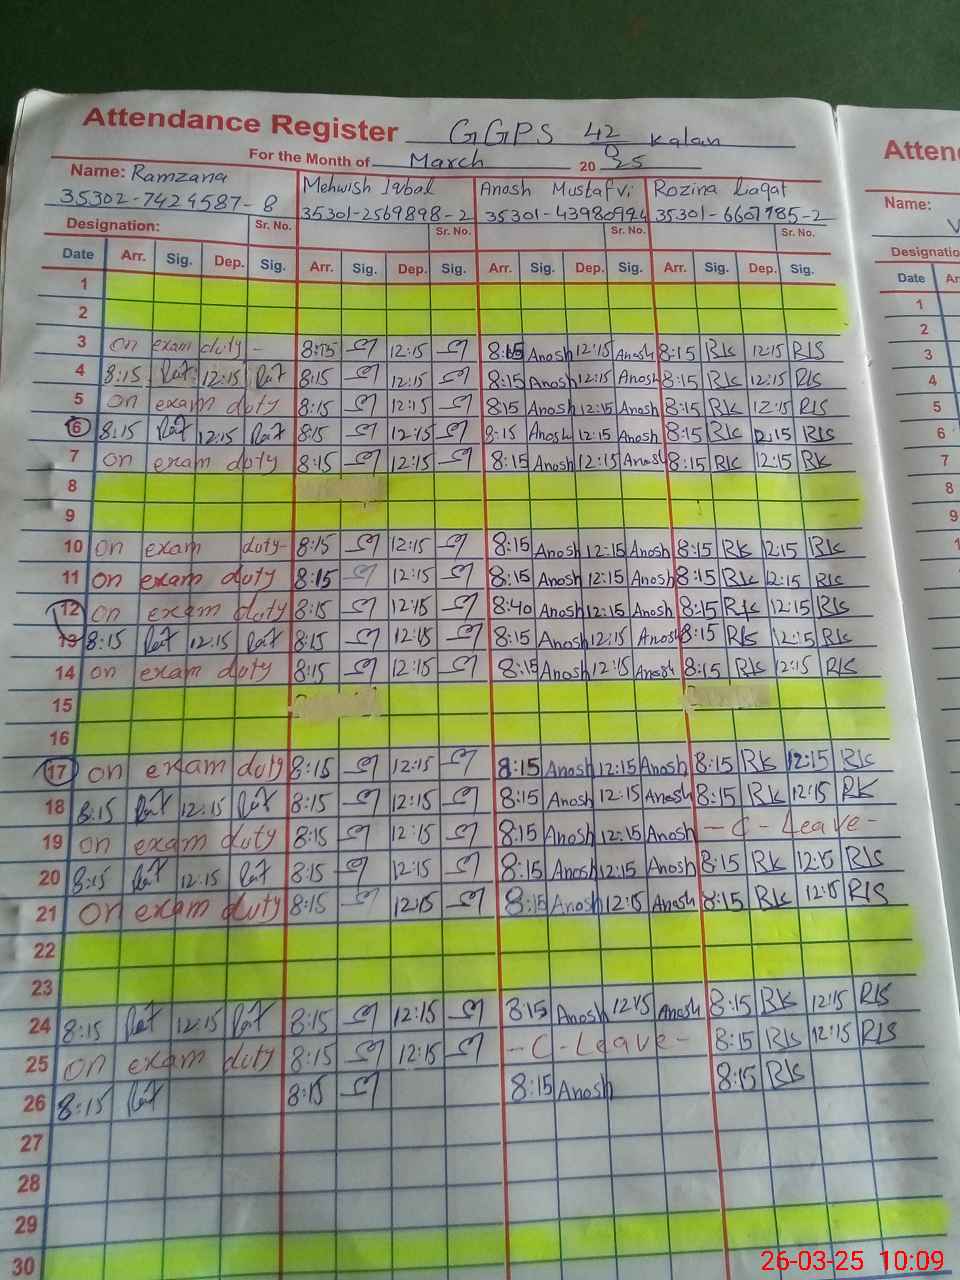 Attendance Register GGPS 42/D Kalan
For the Month of March 2025
Name: Ramzana Mehwish Iqbal Anosh Mustafvi Rozina Liaqat
35302-7429587-8 35301-2569898-2 35301-4398099 35301-6607785-2
Designation: Sr. No. Sr. No. Sr. No. Sr. No.
Date Arr. Sig. Dep. Sig. Arr. Sig. Dep. Sig. Arr. Sig. Dep. Sig. Arr. Sig. Dep. Sig.
1
2
3 on exam duty - 8:15 12:15 8:15 Anosh 12:15 Anosh 8:15 RK 12:15 RK
4 8:15 12:15 8:15 12:15 8:15 Anosh 12:15 Anosh 8:15 RK 12:15 RK
5 on exam duty 8:15 12:15 8:15 Anosh 12:15 Anosh 8:15 RK 12:15 RK
6 8:15 12:15 8:15 12:15 8:15 Anosh 12:15 Anosh 8:15 RK 12:15 RK
7 on exam duty 8:15 12:15 8:15 Anosh 12:15 Anosh 8:15 RK 12:15 RK
8
9
10 on exam duty- 8:15 12:15 8:15 Anosh 12:15 Anosh 8:15 RK 12:15 RK
11 on exam duty 8:15 12:15 8:15 Anosh 12:15 Anosh 8:15 RK 12:15 RK
12 on exam duty 8:15 12:15 8:40 Anosh 12:15 Anosh 8:15 RK 12:15 RK
13 8:15 12:15 8:15 12:15 8:15 Anosh 12:15 Anosh 8:15 RK 12:15 RK
14 on exam duty 8:15 12:15 8:15 Anosh 12:15 Anosh 8:15 RK 12:15 RK
15
16
17 on exam duty 8:15 12:15 8:15 Anosh 12:15 Anosh 8:15 RK 12:15 RK
18 8:15 12:15 8:15 12:15 8:15 Anosh 12:15 Anosh 8:15 RK 12:15 RK
19 on exam duty 8:15 12:15 8:15 Anosh 12:15 Anosh - C - Leave -
20 8:15 12:15 8:15 12:15 8:15 Anosh 12:15 Anosh 8:15 RK 12:15 RK
21 on exam duty 8:15 12:15 8:15 Anosh 12:15 Anosh 8:15 RK 12:15 RK
22
23
24 8:15 12:15 8:15 12:15 8:15 Anosh 12:15 Anosh 8:15 RK 12:15 RK
25 on exam duty 8:15 12:15 - C - Leave - 8:15 RK 12:15 RK
26 8:15 8:15 8:15 Anosh 8:15 RK
27
28
29
30
Atten
Name:
Designatio
Date Ar
1
2
3
4
5
6
7
8
9
26-03-25 10:09